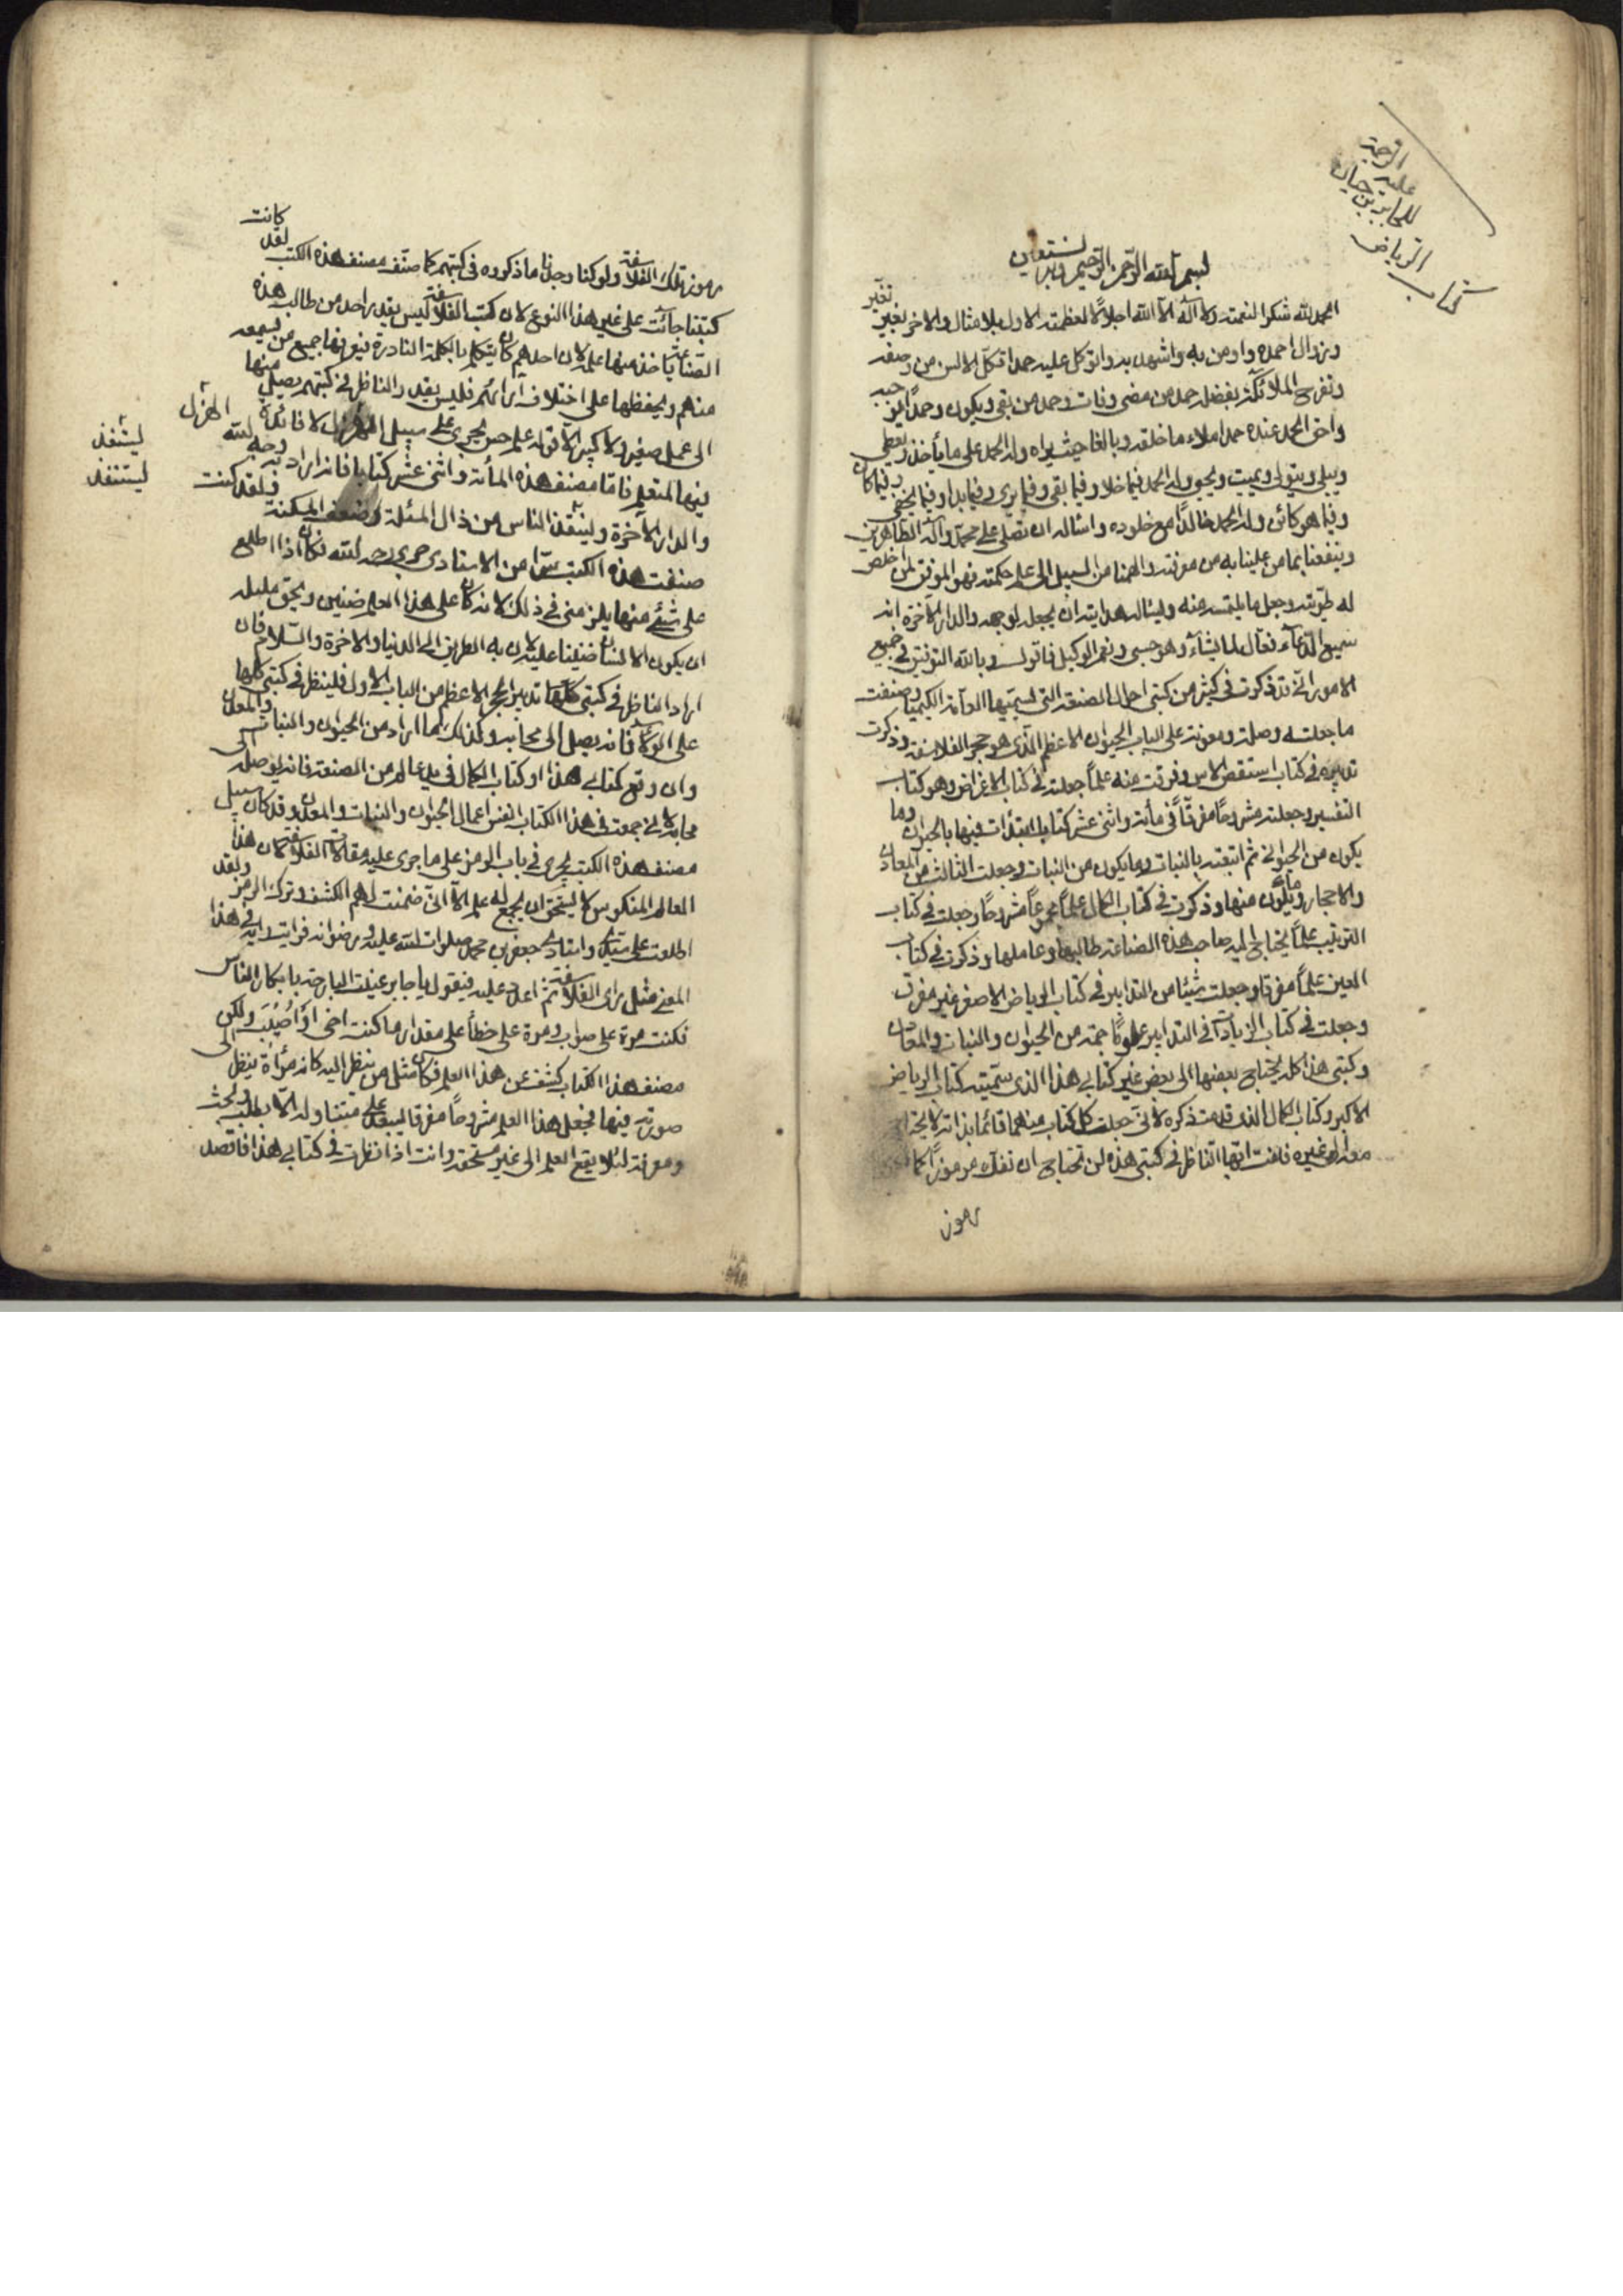 كتاب
الرياض
للجابر بن حيان
عليه
الرحمة
بسم الله الرحمن الرحيم وبه نستعين
الحمد لله شكرا لنعمته ولا اله الا الله اجلالا لعظمته الاول بلا مثال والاخر بغير تغير
وزوال احمده واومن به واشهد به واتوكل عليه حمدا تكل الالسن من وصفه
وتفرح الملائكة بفضله حمد من مضى وفات وحمد من بقى ويكون وحمدا
واخر الحمد عنده حمدا ملاء ما خلقه وبالغا حيث يراه وله الحمد على ما يأخذ ويعطى
ويبلى ويتولى ويميت ويحيى وله الحمد فيما خلا وفيما بقى وفيما يرى وفيما بدا وفيما يخفى وفيما كان
وفيما هو كائن وله الحمد خالدا مع خلوده واسأله ان يصلى على محمد وآله الطاهرين
وينفعنا بما من علينا به من معرفته والهمنا من السبيل الى علم حكمته فهو الموفق لمن اخلص
له طويته وجعل ما يلتمسه منه وليسأله هدايته ان يجعله لوجهه والدار الآخرة انه
سميع الدعاء فعال لما يشاء وهو حسبى ونعم الوكيل فاقول وبالله التوفيق فى جميع
الامور انى قد ذكرت فى كثير من كتبى احوال الصنعة التى تسميها العامة الكيميا وصنفت
ما جعلته وصلة ومعونة على الباب الحيوان الاعظم الذى هو حجر الفلاسفة وذكرت
تدبيره فى كتاب استقص الاس وفرقت منه علما جعلته فى كتاب الاغراض وهو كتاب
التفسير وجعلته مشروحا مفرقا فى مائة واثنى عشر كتابا ابتدأت فيها بالحيوان وما
يكون من الحيوان ثم اتبعته بالنبات وما يكون من النبات وجعلت الثالث من المعادن
والاحجار وما يكون منها وذكرت فى كتاب الكمال علما مجموعا مشروحا وجعلت فى كتاب
الترتيب علما يحتاج اليه صاحب هذه الصناعة طالبها وعاملها وذكرت فى كتاب
العين علما مفرقا وجعلت شيئا من التدابير فى كتاب الرياض الاصغر غير مفرق
وجعلت فى كتاب الزيادات فى التدابير علوما جمة من الحيوان والنبات والمعادن
وكتبى هذا كله يحتاج بعضها الى بعض غير كتابى هذا الذى سميته كتاب الرياض
الاكبر وكتاب الكمال الذى قدمت ذكره لانى جعلت كل كتاب منهما قائما بذاته لا يحتاج
معه الى غيره فانت ايها الناظر فى كتبى هذه لن تحتاج ان تفك مرموزا كما
رموز
رموز تلك الفلاسفة ولو كنا وجدنا ما ذكروه فى كتبهم كما صنف مصنف هذه الكتب لقد كانت
كتبنا جائت على غير هذا النوع لان كتب الفلاسفة ليس يقدر احد من طالب هذه
الصناعة ياخذ منها علما لان احدهم كان يتكلم بالكلمة النادرة فيعرفها جميع من يسمعه
منهم ويحفظها على اختلاف آرائهم فليس يقدر الناظر فى كتبهم يصل منها
الى عمل صغير ولا كبير الا قول علم حسن يجرى على سبيل الهزل لا فائدة
الهزل
فيها المتعلم فاما مصنف هذه المائة واثنى عشر كتابا فانه اراد به وجه الله
والدار الآخرة ولينقذ الناس من ذل المسئلة وضعف المسكنة ولقد كنت
ليستنفذ
ليستنقذ
صنفت هذه الكتب سرا من الاستادى حربى رحمه الله فكان اذا اطلع
على شئ منها يلزمنى فى ذلك لانه كان على هذا العلم ضنين ويحق مليله
ان يكون الانسان ضنينا عليه لان به الطريق الى الدنيا والآخرة والسلام فان
اراد الناظر فى كتبى كلها تدبير الحجر الاعظم من الباب الاول فلينظر فى كتبى كلها
على الولا فانه يصل الى محابه وكذلك بما اراد من الحيوان والنبات والمعدن
وان وقع كتابى هذا او كتاب الكمال فى يد عالم من الصنعة فانه يوصله الى
محابه لانى جمعت فى هذا الكتاب النفس اعمال الحيوان والنبات والمعدن وقد كان سبيل
مصنف هذه الكتب يجرى فى باب الرمز على ما جرى عليه مقالات الفلاسفة لان هذا
العالم المنكوس لا يستحق ان يجمع له علم الا انى ضمنت لهم الكشف وترك الرمز ولقد
اطلعت على سيدى واستادى جعفر بن محمد صلوات الله عليه ورضوانه فرايت رايه فى هذا
المعنى مثل راى الفلاسفة ثم اعلا عليه فيقول يا جابر عنيت البارحة بابكار الناس
فكنت مرة على صواب ومرة على خطأ على مقدار ما كنت اخى او اصيب ولكن
مصنف هذا الكتاب كشف عن هذا العلم فكان مثل من ينظر اليه كانه مرآة ينظر الى
صورته فيها فجعل هذا العلم مشروحا مفرقا ليبعد على متناوله الا بطلب وبحث
ومعرفة لئلا يقع العلم الى غير مستحقه وانت اذا نظرت فى كتابى هذا فاقصد